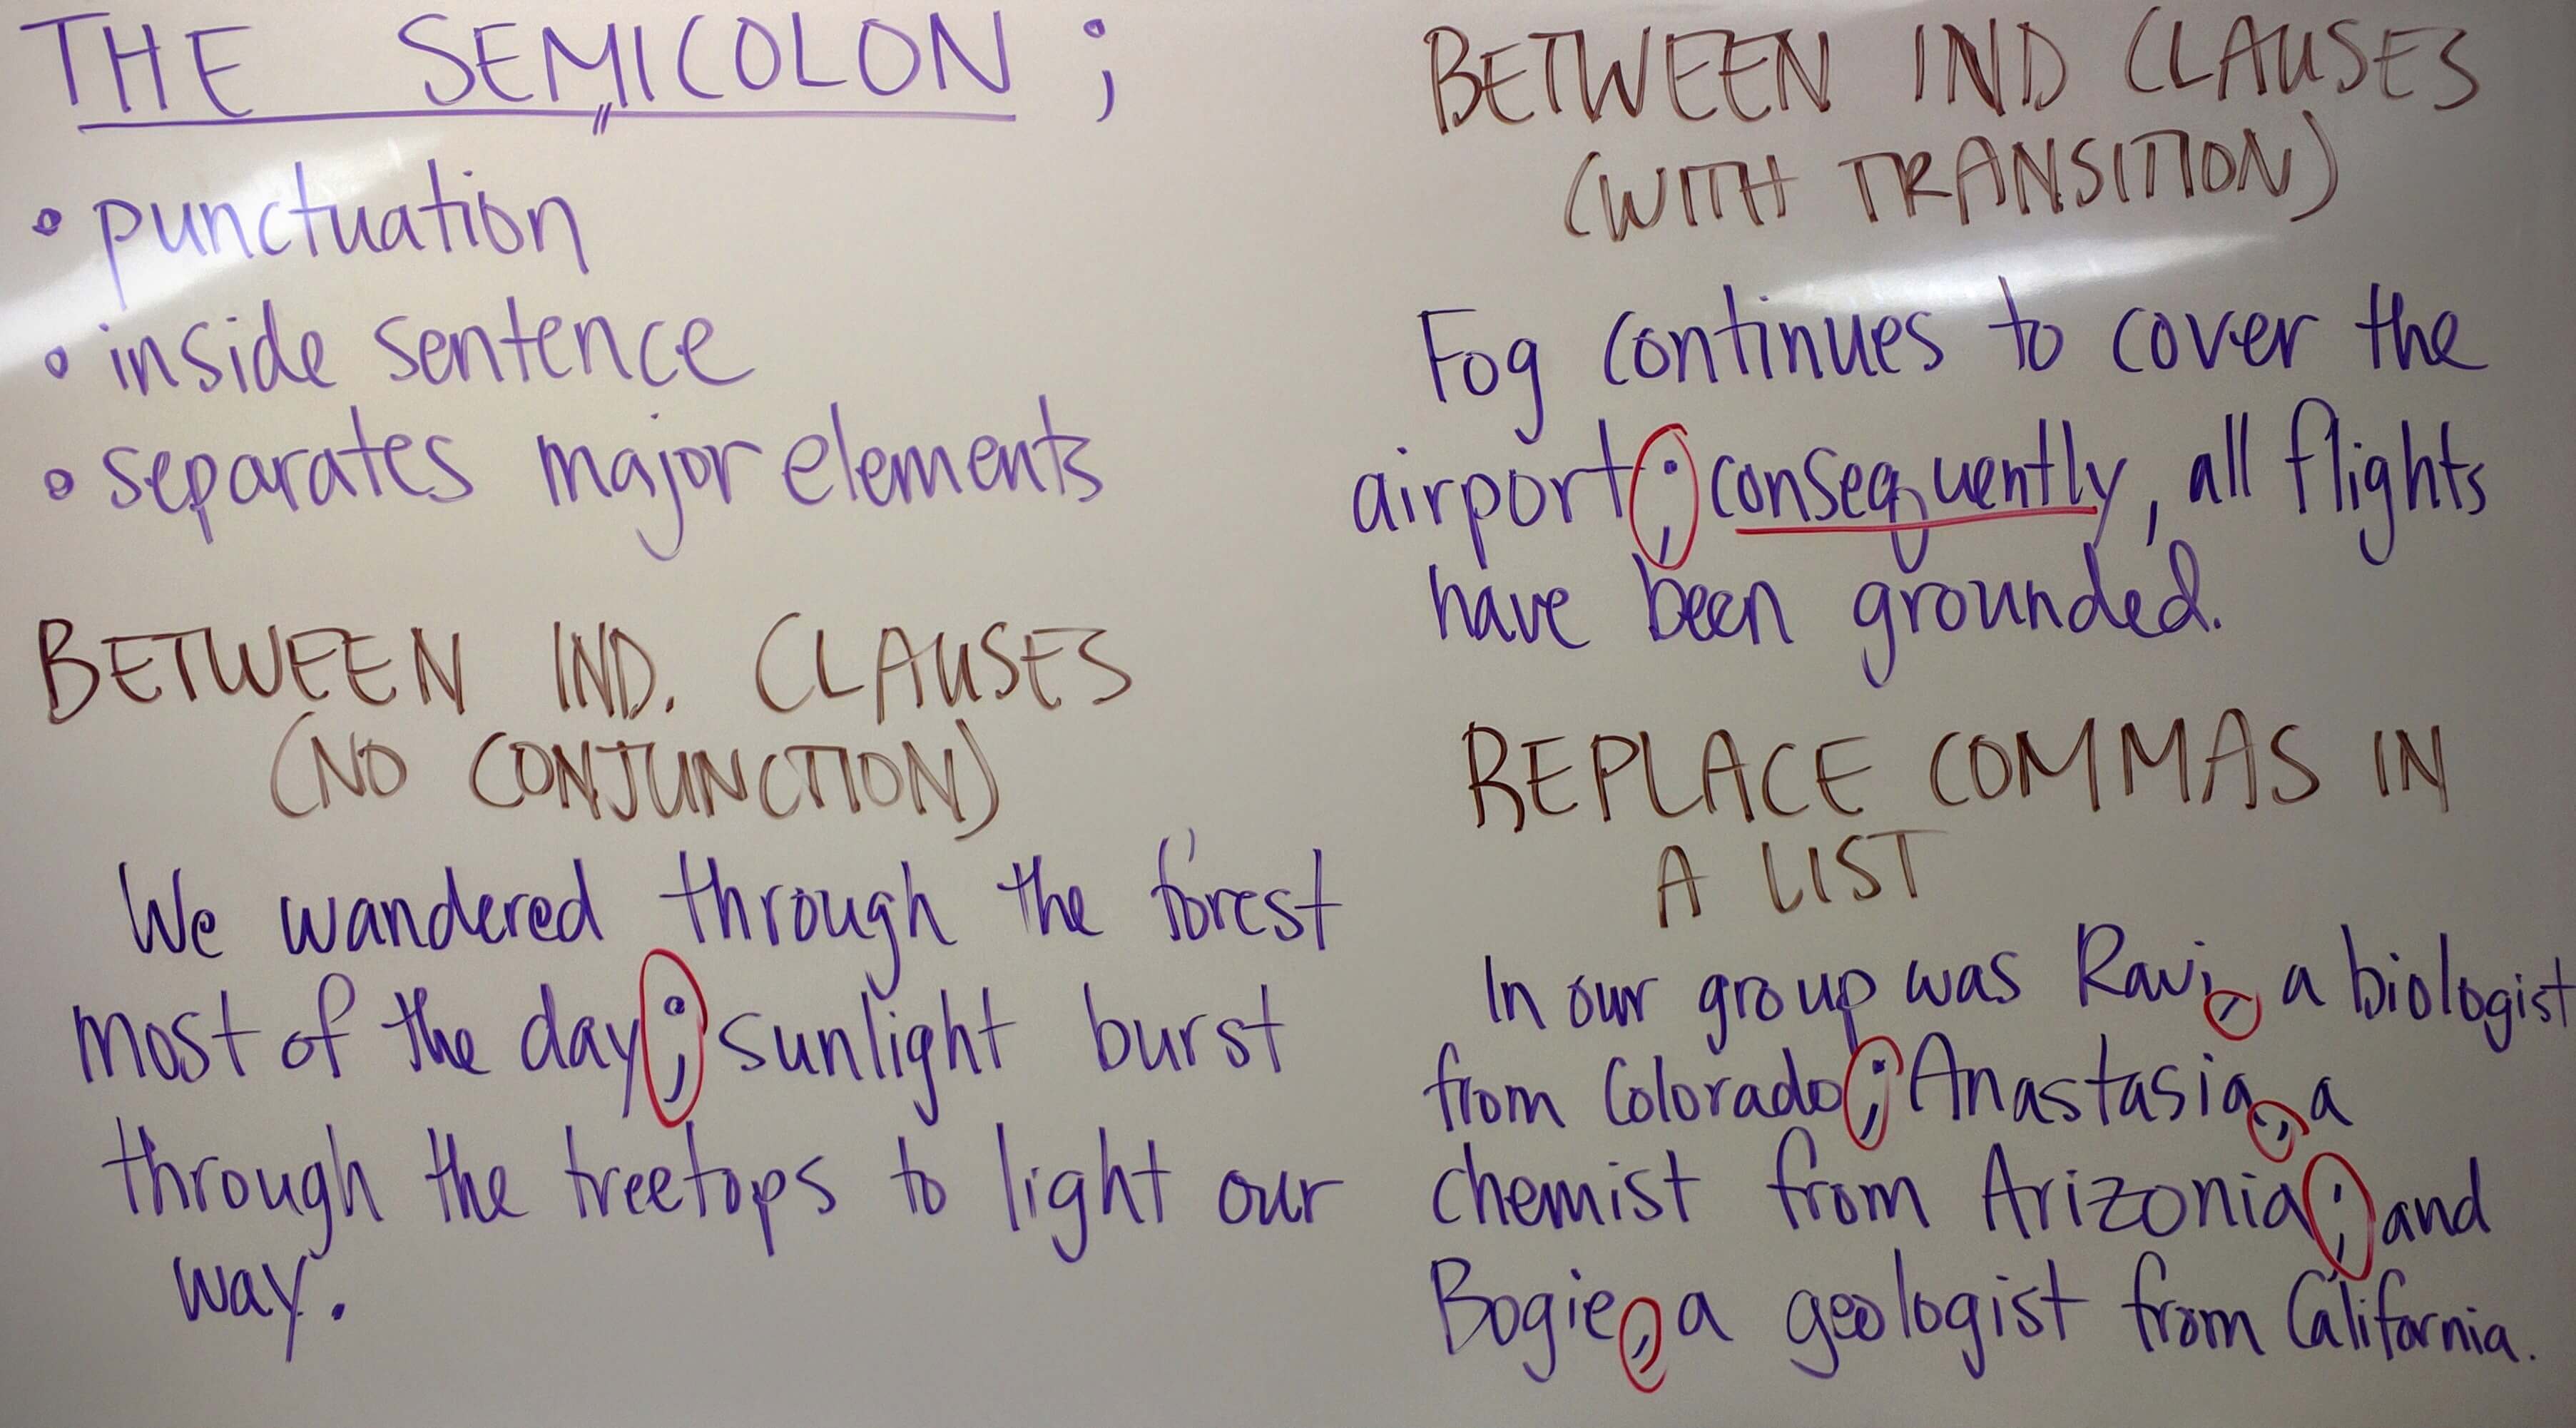 THE SEMICOLON ;
• punctuation
• inside sentence
• separates major elements
BETWEEN IND. CLAUSES
(NO CONJUNCTION)
We wandered through the forest
most of the day; sunlight burst
through the treetops to light our
way.
BETWEEN IND CLAUSES
(WITH TRANSITION)
Fog continues to cover the
airport; consequently, all flights
have been grounded.
REPLACE COMMAS IN
A LIST
In our group was Ravi, a biologist
from Colorado; Anastasia, a
chemist from Arizonia; and
Bogie, a geologist from California.